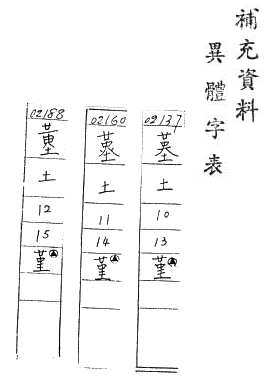 補充資料
異體字表
02137
土
10
13
堇
02160
土
11
14
堇
02188
土
12
15
堇